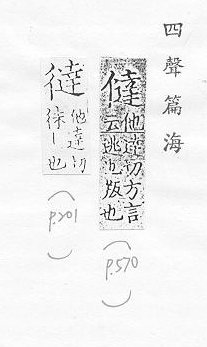 四聲篇海
㒓
他達切方言
云逃也版也
(p.570)
他達切
徐丨也
(p.201)